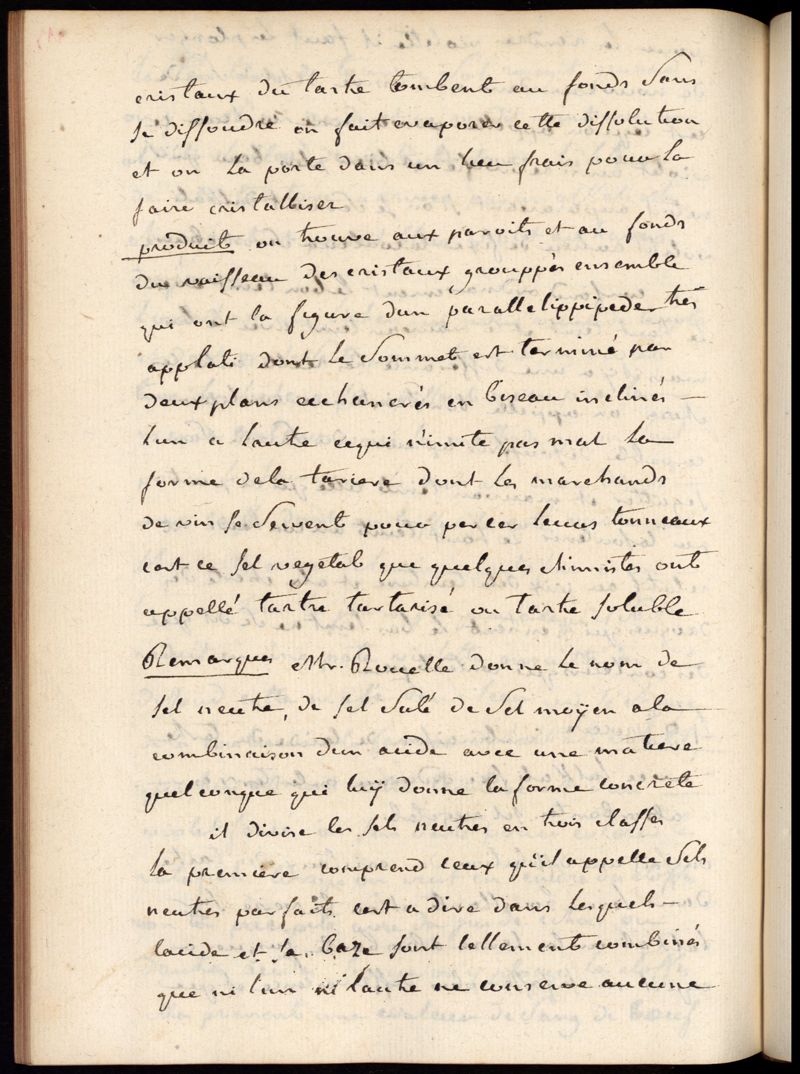 cristaux du tartre tombent au fonds Sans
se dissoudre on fait evaporer cette dissolution
et on la porte dans un lieu frais pour la
faire cristalliser
produit on trouve aux paroits et au fonds
du vaisseau des cristaux grouppés ensemble
qui ont la figure dun parallelippipede très
applati dont le Sommet est terminé par
deux plans echancrés en biseau inclinés –
lun a lautre cequi n'imite pas mal la
forme dela tariere dont les marchands
de vin se Servent pour percer leurs tonneaux
cest ce sel vegetal que quelques chimistes ont
appellé tartre tartarisé ou tartre soluble
Remarques Mr. Rouelle donne le nom de
sel neutre, de sel Salé de Sel moÿen a la
combinaison dun acide avec une matiere
quelconque qui luÿ donne la forme concrete
il divise les sels neutres en trois classes
la premiere comprend ceux qu'il appelle Sels
neutres parfaits cest a dire dans lesquels –
lacide et sa baze sont tellement combinés
que ni l'un ni lautre ne conserve aucune